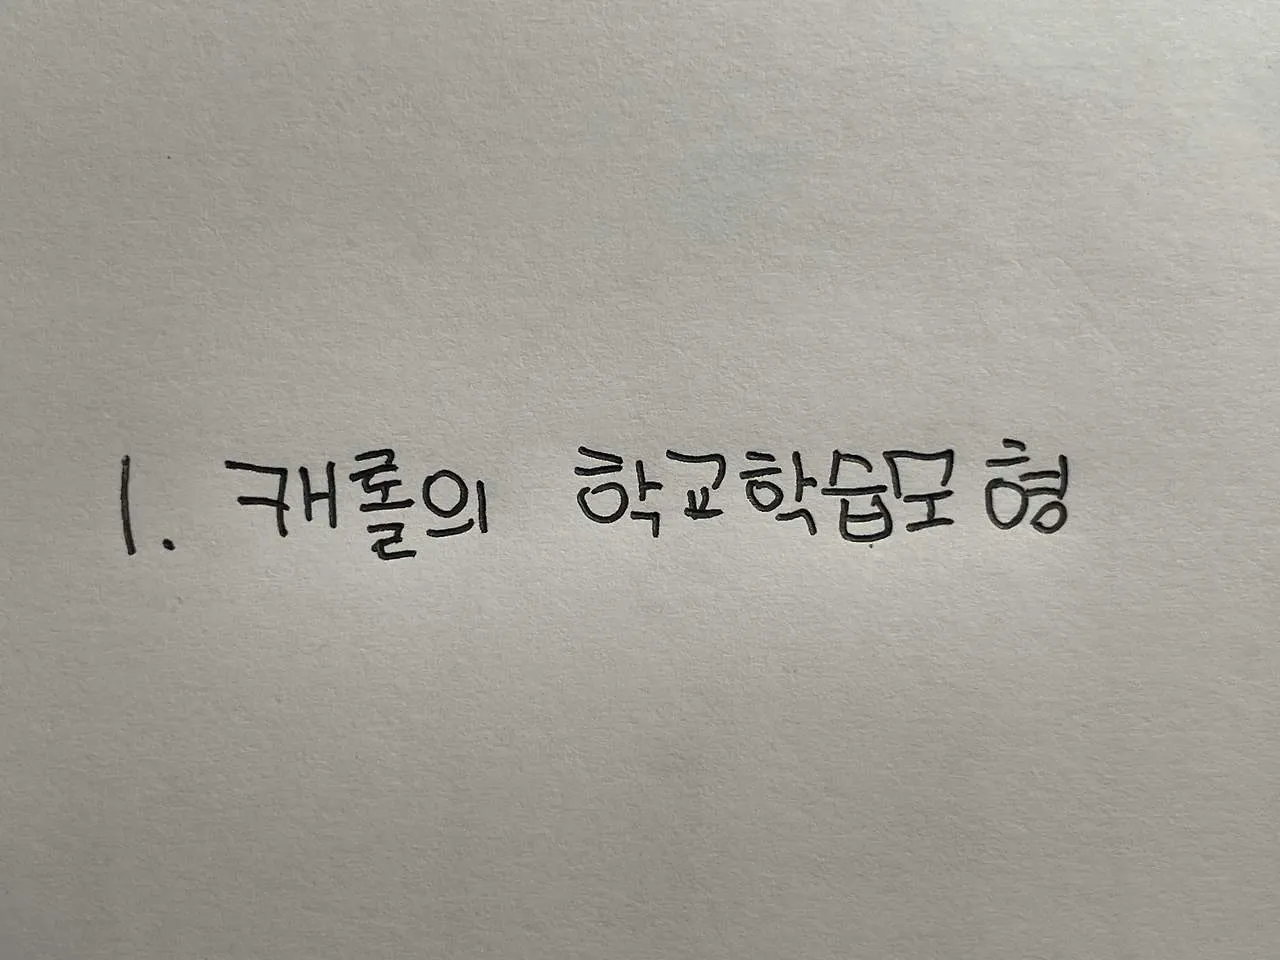 1. 캐롤의 학교학습모형